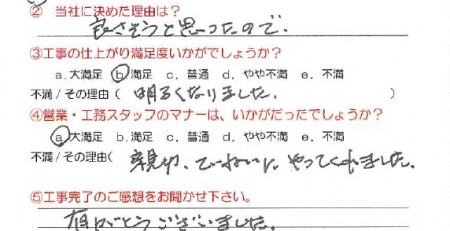 ② 当社に決めた理由は？
良さそうと思ったので.
③工事の仕上がり満足度いかがでしょうか？
a.大満足 b.満足 c. 普通 d. やや不満 e. 不満
不満 / その理由（ 明るくなりました.
④営業・工務スタッフのマナーは、いかがだったでしょうか？
a.大満足 b.満足 c. 普通 d. やや不満 e. 不満
不満 / その理由( 親切、ていねいに やってくれました.
⑤工事完了のご感想をお聞かせ下さい。
有りがとうございました.